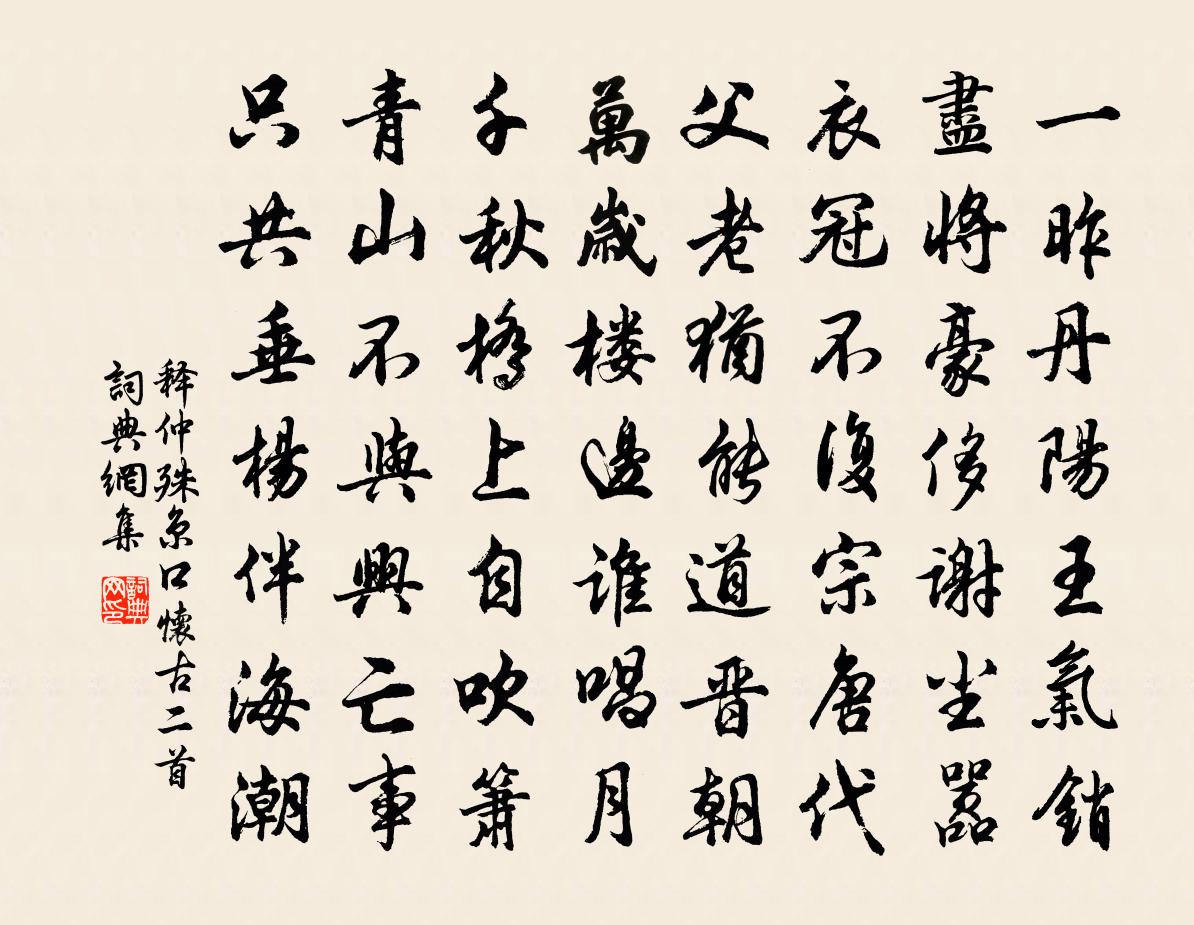 一昨丹陽王氣銷
盡將豪侈謝尘囂
衣冠不復宗唐代
父老猶能道晋朝
萬歲楼邊誰唱月
千秋橋上自吹簫
青山不與興亡事
只共垂楊伴海潮
释仲殊京口懷古二首
詞典網集
詞典网印